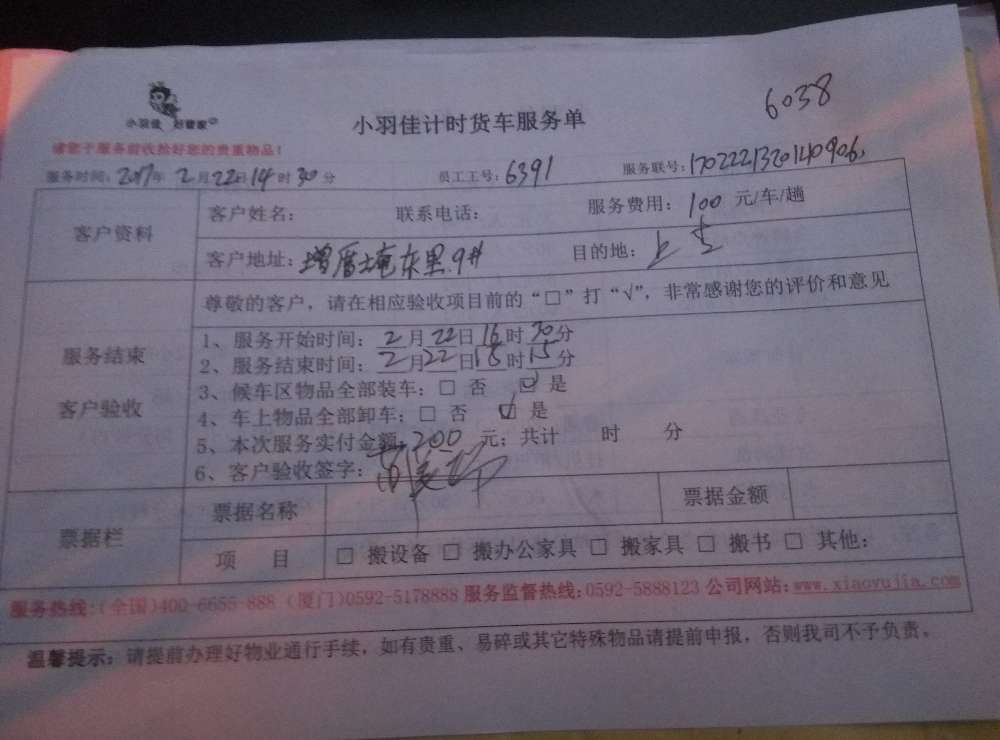 6038
小羽佳 好管家
小羽佳计时货车服务单
请您于服务前收拾好您的贵重物品！
服务时间：2017年 2月22日14时30分 员工工号：6391 服务联号：170222132014090б
客户资料
客户姓名： 联系电话： 服务费用：100 元/车/趟
客户地址：增厝垵东里9# 目的地：
尊敬的客户，请在相应验收项目前的“□”打“√”，非常感谢您的评价和意见
服务结束
客户验收
1、服务开始时间：2月22日16时30分
2、服务结束时间：2月22日18时15分
3、候车区物品全部装车：□ 否 ☑ 是
4、车上物品全部卸车：□ 否 ☑ 是
5、本次服务实付金额：200 元；共计 时 分
6、客户验收签字：
票据栏
票据名称 票据金额
项 目 □ 搬设备 □ 搬办公家具 □ 搬家具 □ 搬书 □ 其他：
服务热线：(全国)400-6655-888 (厦门)0592-5178888 服务监督热线：0592-5888123 公司网站：www.xiaoyujia.com
温馨提示：请提前办理好物业通行手续，如有贵重、易碎或其它特殊物品请提前申报，否则我司不予负责。